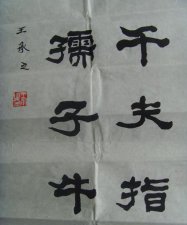 千夫指
孺子牛
王承之